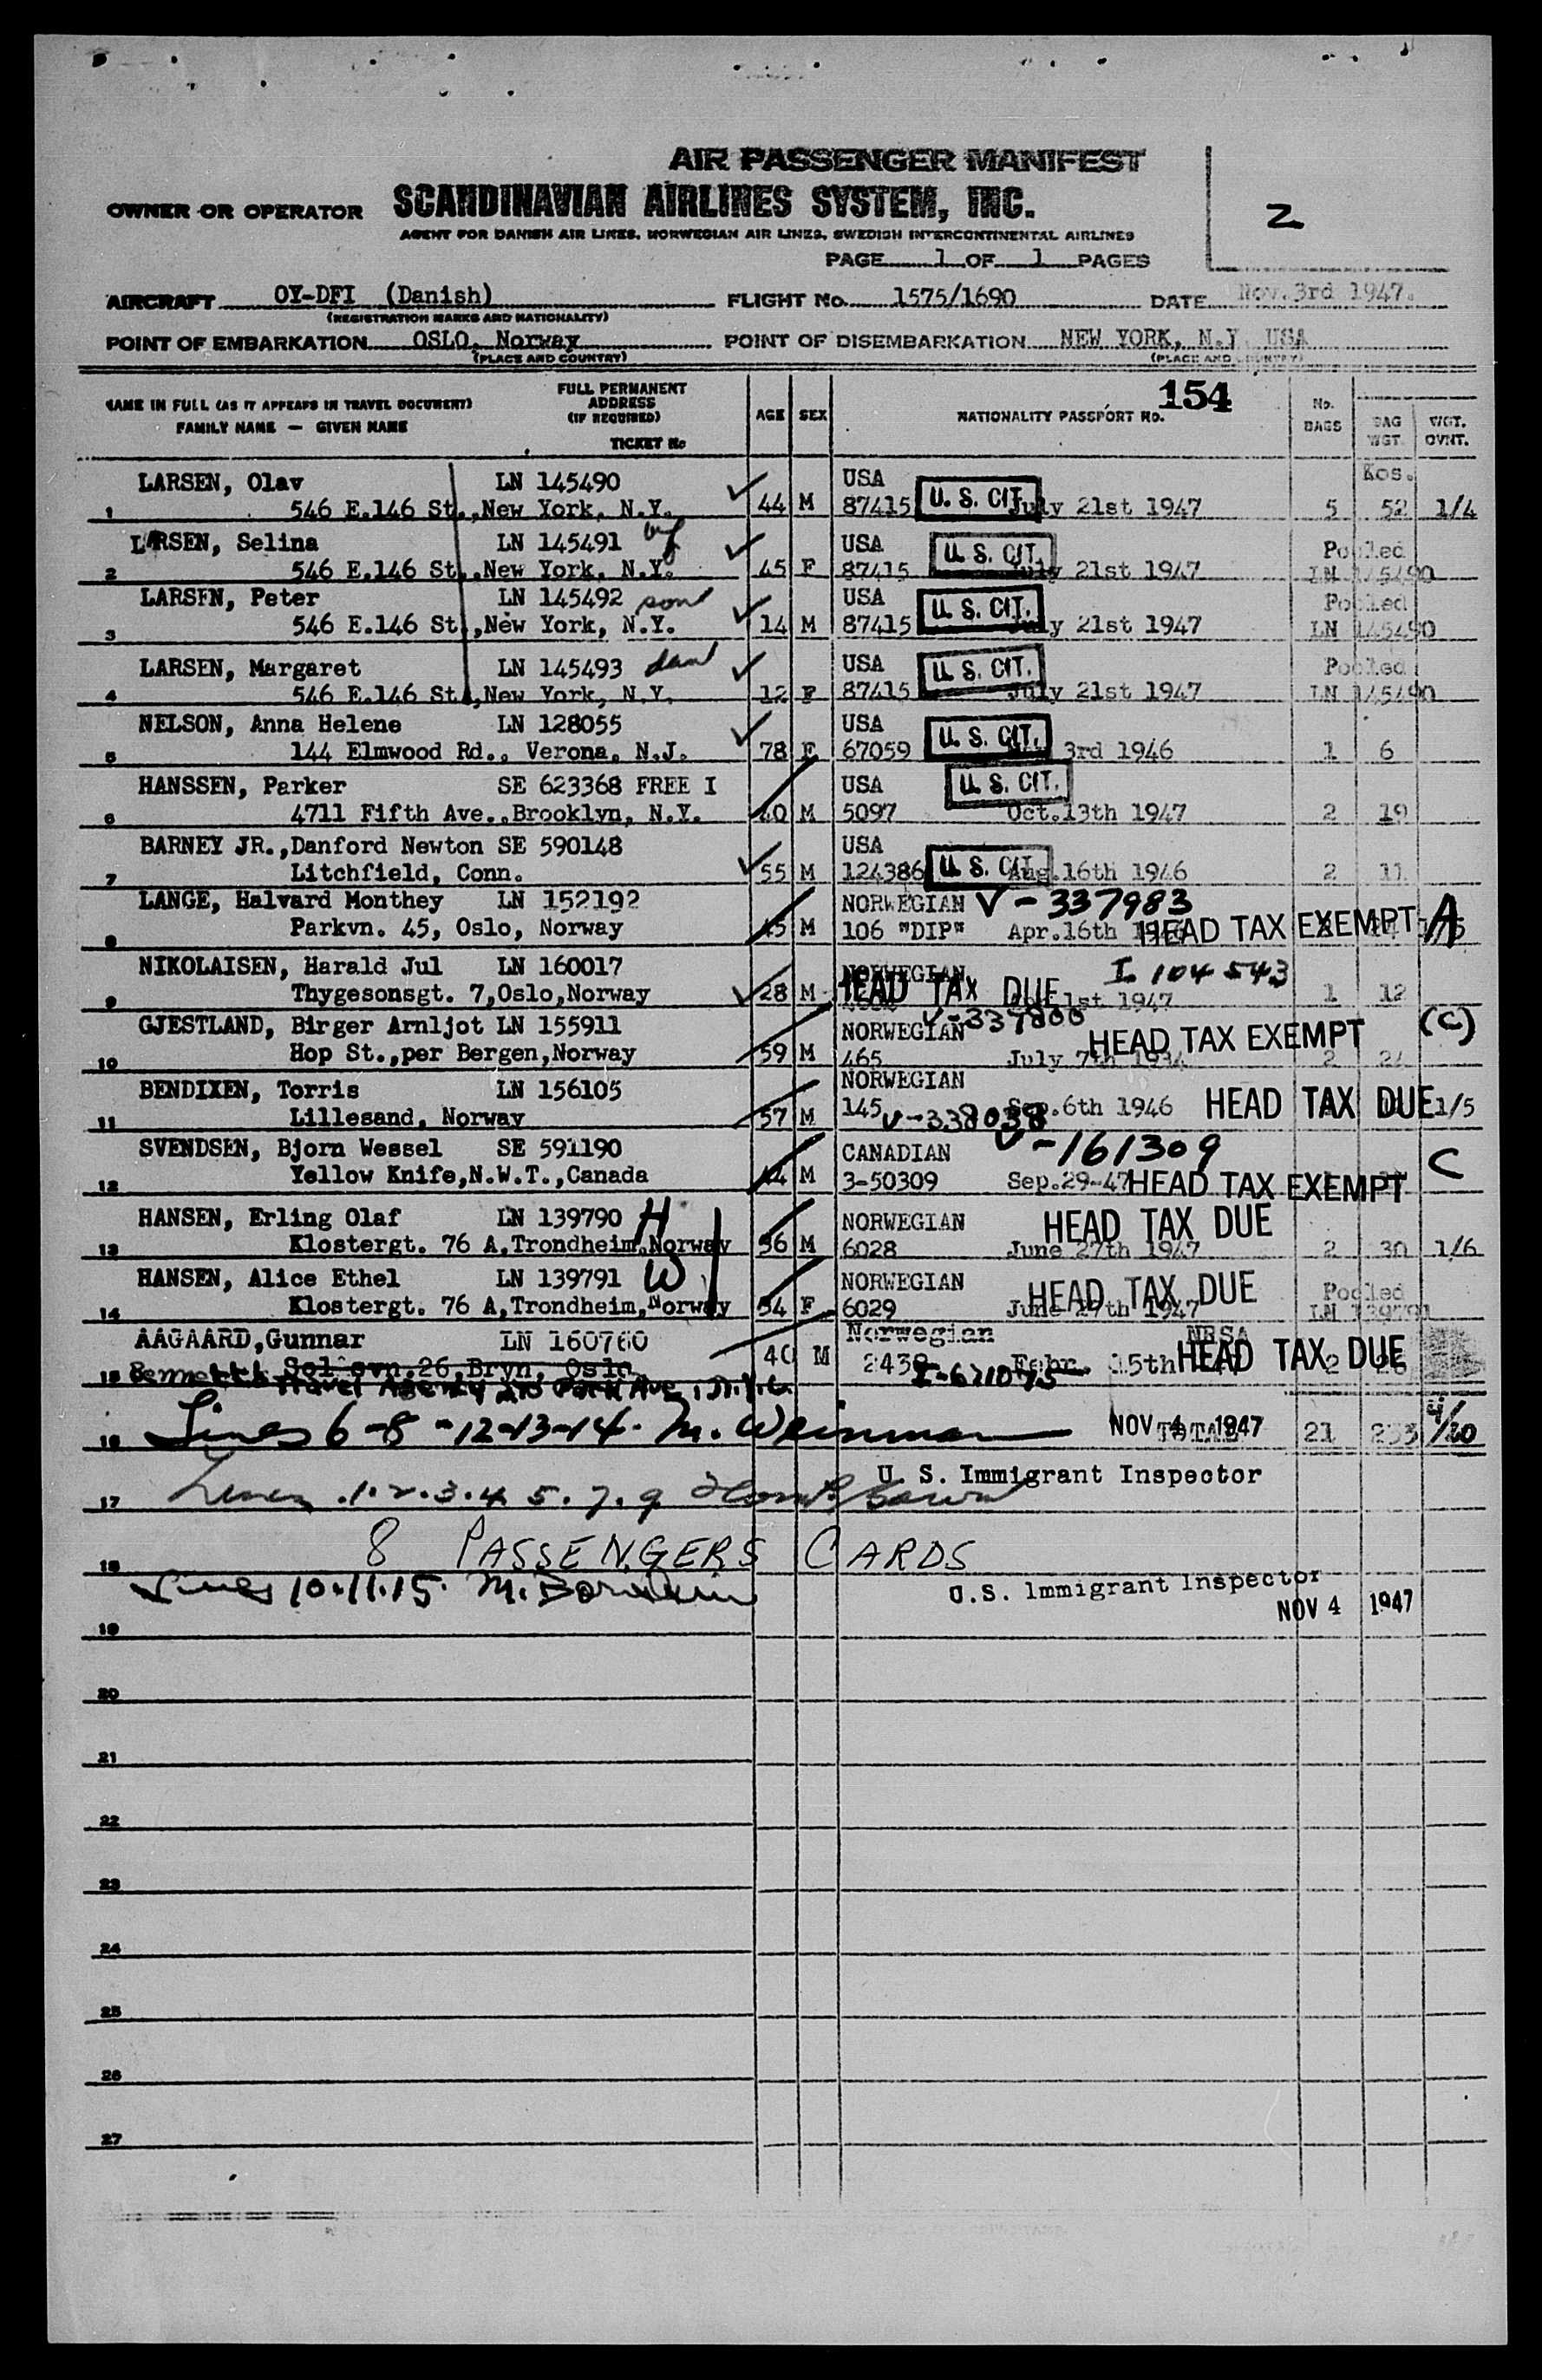 AIR PASSENGER MANIFEST
OWNER OR OPERATOR SCANDINAVIAN AIRLINES SYSTEM, INC.
2
AGENT FOR DANISH AIR LINES, NORWEGIAN AIR LINES, SWEDISH INTERCONTINENTAL AIRLINES
PAGE 1 OF 1 PAGES
AIRCRAFT OY-DFI (Danish) FLIGHT No. 1575/1690 DATE Nov. 3rd 1947.
(REGISTRATION MARKS AND NATIONALITY)
POINT OF EMBARKATION OSLO, Norway POINT OF DISEMBARKATION NEW YORK, N.Y. USA
(PLACE AND COUNTRY) (PLACE AND COUNTRY)
NAME IN FULL (AS IT APPEARS IN TRAVEL DOCUMENT) FULL PERMANENT ADDRESS (IF REQUIRED) AGE SEX NATIONALITY PASSPORT No. 154 No. BAGS BAG WGT. WGT. OVHT.
FAMILY NAME — GIVEN NAME TICKET No
LARSEN, Olav LN 145490 USA Kos.
1 546 E.146 St.,New York, N.Y. 44 M 87415 U. S. CIT. July 21st 1947 5 52 1/4
LARSEN, Selina LN 145491 USA U. S. CIT. Pooled
2 546 E.146 St.,New York, N.Y. 45 F 87415 July 21st 1947 LN 145490
LARSEN, Peter LN 145492 son USA U. S. CIT. Pooled
3 546 E.146 St.,New York, N.Y. 14 M 87415 July 21st 1947 LN 145490
LARSEN, Margaret LN 145493 USA U. S. CIT. Pooled
4 546 E.146 St.,New York, N.Y. 12 F 87415 July 21st 1947 LN 145490
NELSON, Anna Helene LN 128055 USA U. S. CIT.
5 144 Elmwood Rd., Verona, N.J. 78 F 67059 3rd 1946 1 6
HANSSEN, Parker SE 623368 FREE I USA U. S. CIT.
6 4711 Fifth Ave.,Brooklyn, N.Y. 40 M 5097 Oct.13th 1947 2 19
BARNEY JR.,Danford Newton SE 590148 USA
7 Litchfield, Conn. 55 M 124386 U. S. CIT. Aug.16th 1946 2 11
LANGE, Halvard Monthey LN 152192 NORWEGIAN V-337983
8 Parkvn. 45, Oslo, Norway 45 M 106 "DIP" Apr.16th HEAD TAX EXEMPT A
NIKOLAISEN, Harald Jul LN 160017 NORWEGIAN I 104543
9 Thygesonsgt. 7,Oslo,Norway 28 M HEAD TAX DUE 1st 1947 1 12
GJESTLAND, Birger Arnljot LN 155911 NORWEGIAN V-337800 HEAD TAX EXEMPT (C)
10 Hop St.,per Bergen,Norway 59 M 465 July 7th 2
BENDIXEN, Torris LN 156105 NORWEGIAN
11 Lillesand, Norway 57 M 145 V-338038 Sep.6th 1946 HEAD TAX DUE 1/5
SVENDSEN, Bjorn Wessel SE 591190 CANADIAN V-161309 C
12 Yellow Knife,N.W.T.,Canada 44 M 3-50309 Sep.29-47 HEAD TAX EXEMPT
HANSEN, Erling Olaf LN 139790 H NORWEGIAN HEAD TAX DUE
13 Klostergt. 76 A,Trondheim,Norway 56 M 6028 June 27th 1947 2 30 1/6
HANSEN, Alice Ethel LN 139791 W NORWEGIAN HEAD TAX DUE Pooled
14 Klostergt. 76 A,Trondheim,Norway 54 F 6029 June 27th 1947 LN
AAGAARD,Gunnar LN 160760 Norwegian
15 26,Bryn, Oslo 40 M Febr. 15th HEAD TAX DUE 2
Travel Agency Park Ave.
16 Lines 6-8-12-13-14. M. Weinman NOV 4 1947 TOTAL 21 253
U. S. Immigrant Inspector
17 Lines 1.2.3.4 5.7.9
18 8 PASSENGERS CARDS
Lines 10.11.15. U.S. Immigrant Inspector
NOV 4 1947
19
20
21
22
23
24
25
26
27